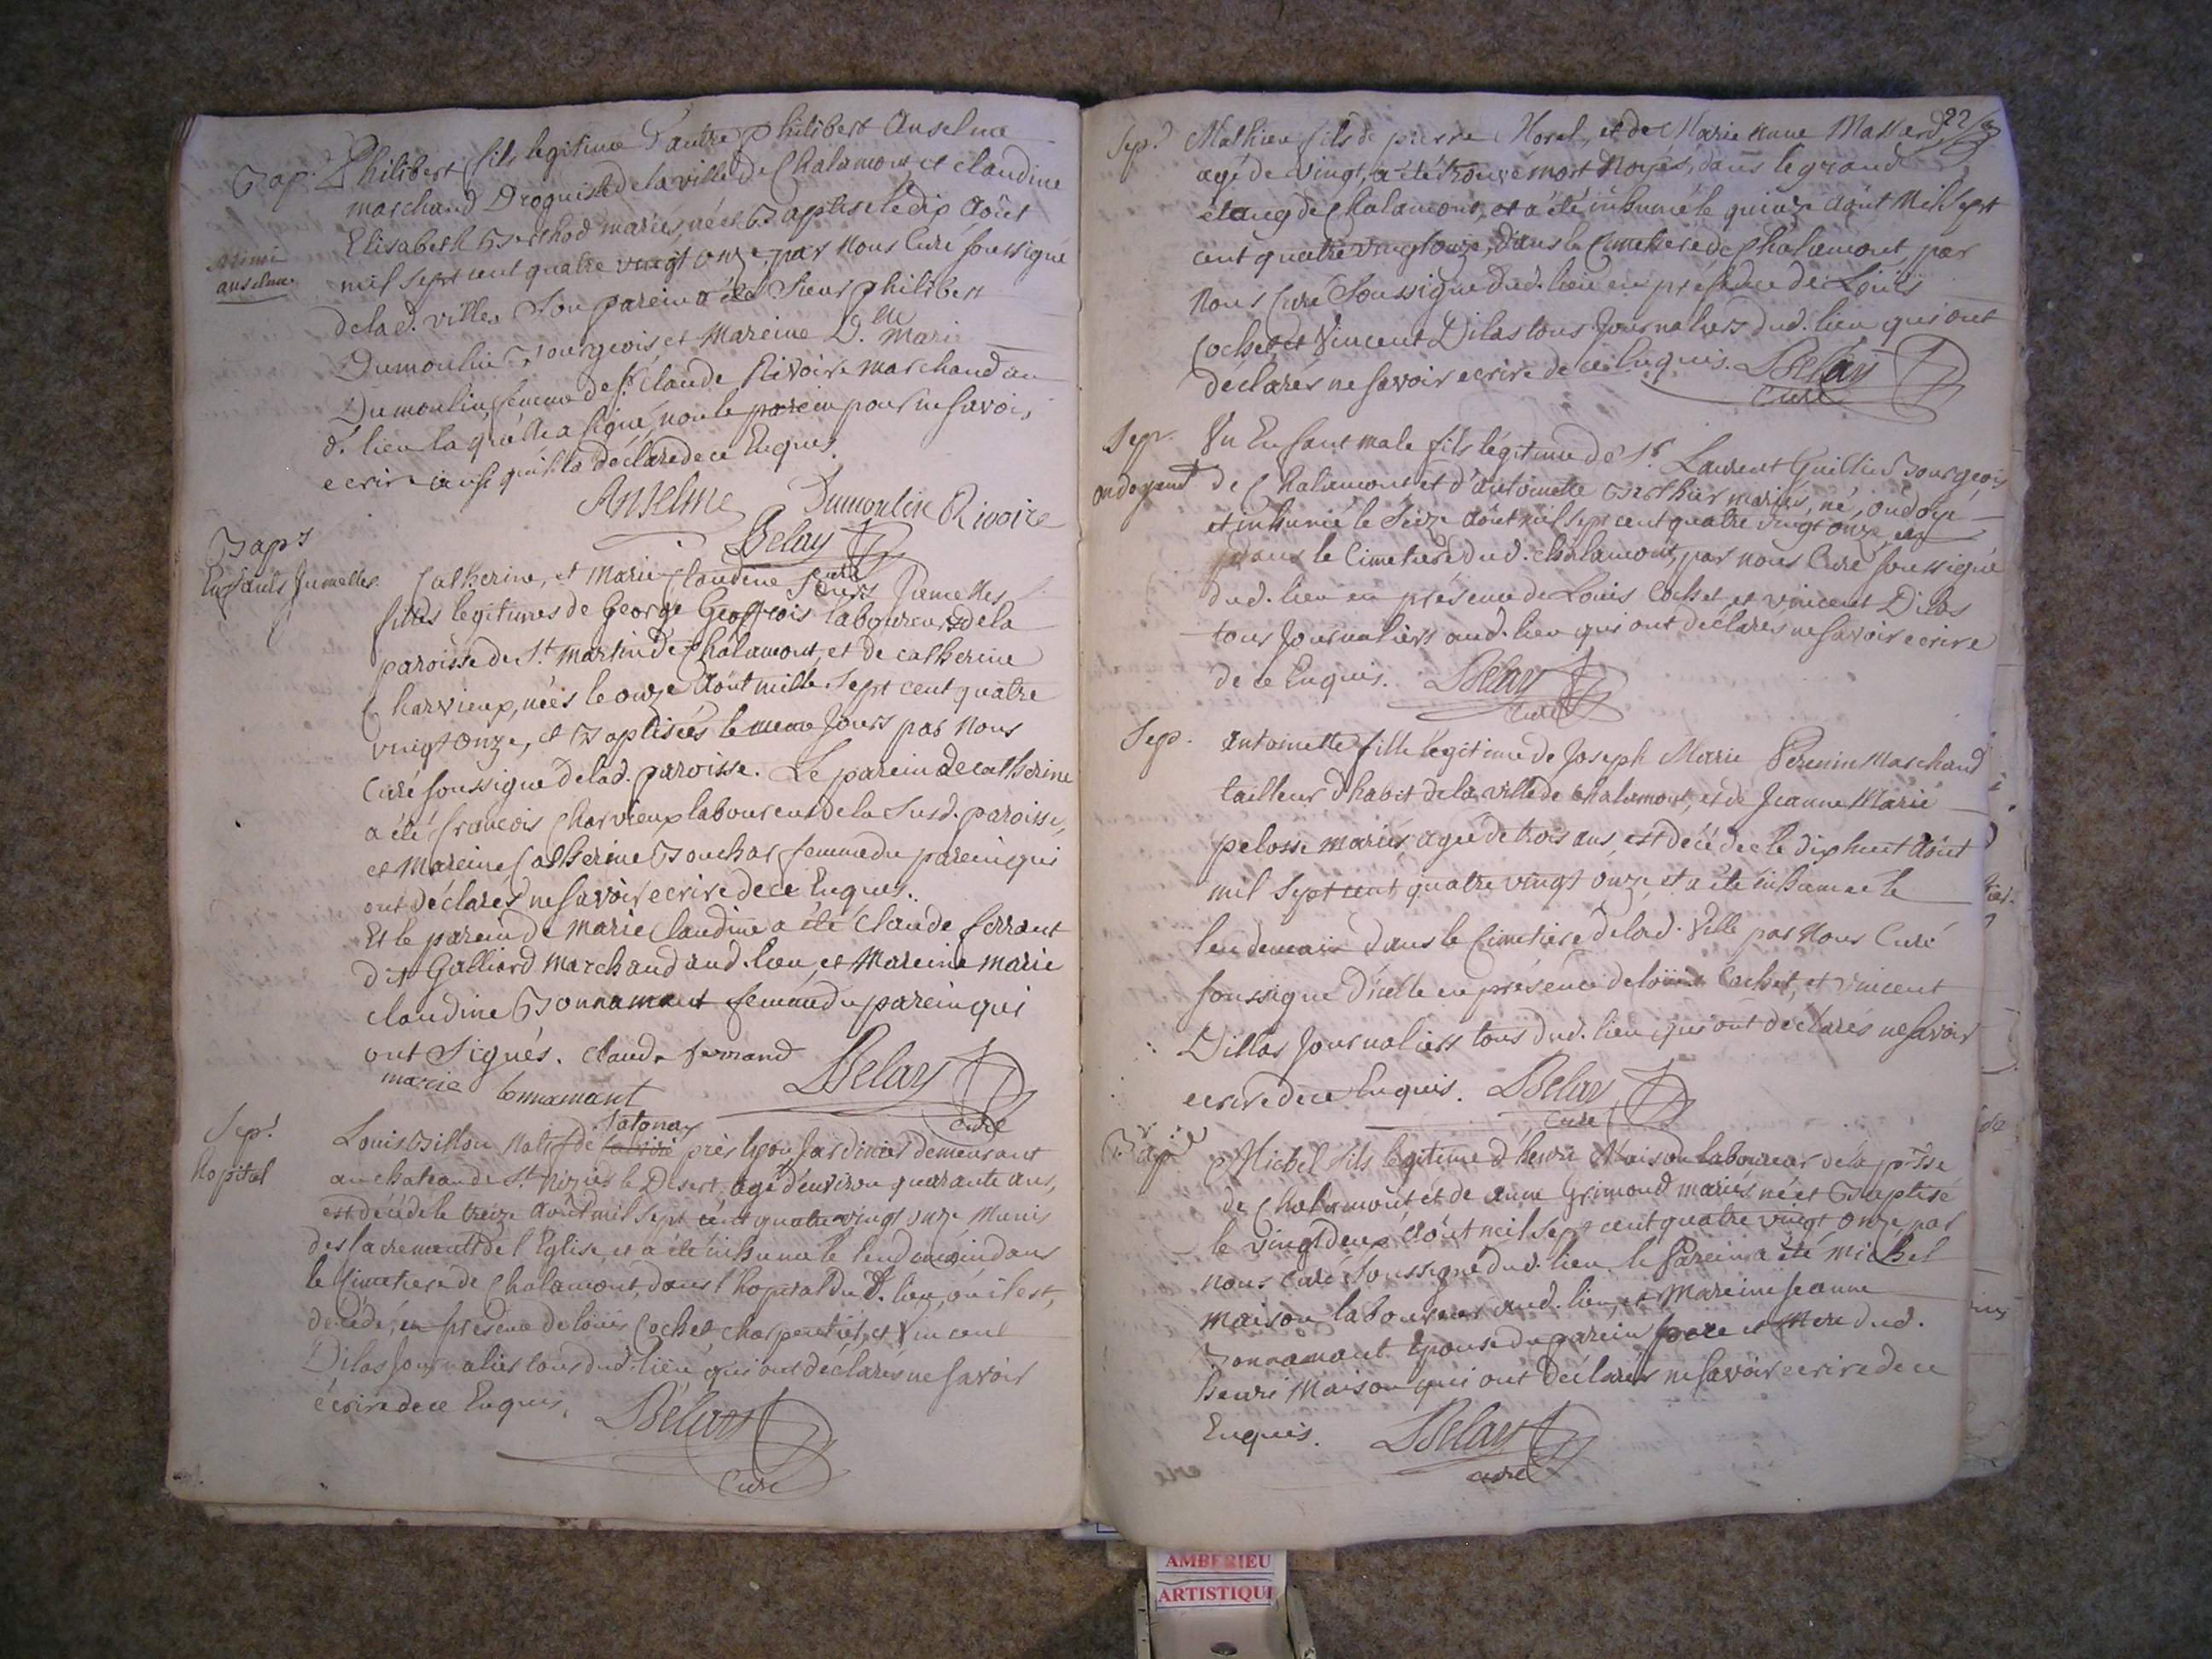 Bap. Philibert fils legitime d'autre Philibert Anselme
marchand Droguiste de la ville de Chalamont, et claudine
Elisabeth Berthod mariés, né et Baptisé le dix Août
mil sept cent quatre vingt onze, par Nous Curé soussigné
anselme
de lad. ville. Son parein a été Sieur philibert
Dumoulin Bourgeois et Mareine D.lle Marie
Dumoulin femme de Sr. Claude Rivoire marchand au
d. lieu laquelle a signé, non le parein pour ne savoir
ecrire ainsi qu'il la déclaré de ce Enquis.
Anselme Dumoulin Rivoire
Belay
curé
Bapt
Enfants Jumelles.
Catherine, et Marie Claudine Sœurs Jumelles
filles legitimes de George Geoffrois laboureur de la
paroisse de St. Martin de Chalamont, et de catherine
Charvieux, nées le onze Août mille Sept cent quatre
vingt onze, et Baptisées le meme Jours par Nous
Curé soussigné de lad. paroisse. Le parein de catherine
a été francois Charvieux laboureur de la Susd. paroisse,
et Mareine Catherine Bouchar femme du parein qui
ont déclarés ne savoir ecrire de ce Enquis.
Et le parein de Marie Claudine a été Claude ferrant
dit Galliard Marchand aud. lieu, et Mareine Marie
claudine Bonnamant femme du parein qui
ont Signés. claude ferrand
marie bonnamant
Belay
curé
Sep.
hopital
Louis Billon Natif de Satonay près lyon Jardinier demeurant
au chateau de St. Nizier le Désert, agé d'environ quarante ans,
est décédé le treize août mil sept cent quatre vingt onze Munis
des sacrements de l'Eglise, et a été inhumé le lendemain dans
le Cimetiere de Chalamont, dans l'hopital du d. lieu, où il est,
décédé, en presence de Louis Cochet charpentier, et Vincent
Dilas Journalier tous dud. lieu qui ont déclarés ne savoir
écrire de ce Enquis.
Belay
Curé
22
Sep. Mathieu fils de pierre Morel, et de Marie Anne Massard
agé de vingt, a été trouvé mort Noyés, dans le grand
étang de Chalamont, et a été inhumé le quinze Août Mil Sept
cent quatre vingt onze, dans le Cimetiere de Chalamont, par
Nous Curé Soussigné dud. lieu en présence de Louis
Cochet, et Vincent Dilas tous Journaliers dud. lieu qui ont
déclarés ne Savoir ecrire de ce Enquis. Belay
Curé
Sep.
ondoyant
Un Enfant male fils légitime de Sr. Laurent Guillin Bourgeois
de Chalamont et d'antoinette Berthier mariés, né, ondoyé
et inhumé le Seize Août mil sept cent quatre vingt onze,
dans le Cimetiere dud. Chalamont, par nous Curé soussigné
dud. lieu en présence de Louis Cochet et vincent Dilas
tous Journaliers aud. lieu qui ont déclarés ne savoir ecrire
de ce Enquis. Belay
Curé
Sep. Antoinette fille legitime de Joseph Marie Perenin Marchand
tailleur d'habit de la ville de Chalamont, et de Jeanne Marie
pelosse mariés, agée de trois ans, est décédée le dix huit Août
mil sept cent quatre vingt onze, et a été inhumée le
lendemain dans le Cimetiere de lad. Ville par Nous Curé
soussigné d'icelle en présence de Louis Cochet, et vincent
Dillas Journaliers tous dud. lieu qui ont déclarés ne savoir
ecrire de ce Enquis. Belay
Curé
Bap. Michel fils légitime d'henri Maison laboureur de la psse
de Chalamont et de anne Grimond mariés, né et Baptisé
le vingt deux Août mil sept cent quatre vingt onze par
nous curé Soussigné dud. lieu le Parein a été Michel
Maison laboureur aud. lieu, et Mareine Jeanne
Bonnamant Epouse du parein pere et Mere dud.
henri Maison qui ont déclarés ne savoir ecrire de ce
Enquis. Belay
curé
AMBERIEU
ARTISTIQU